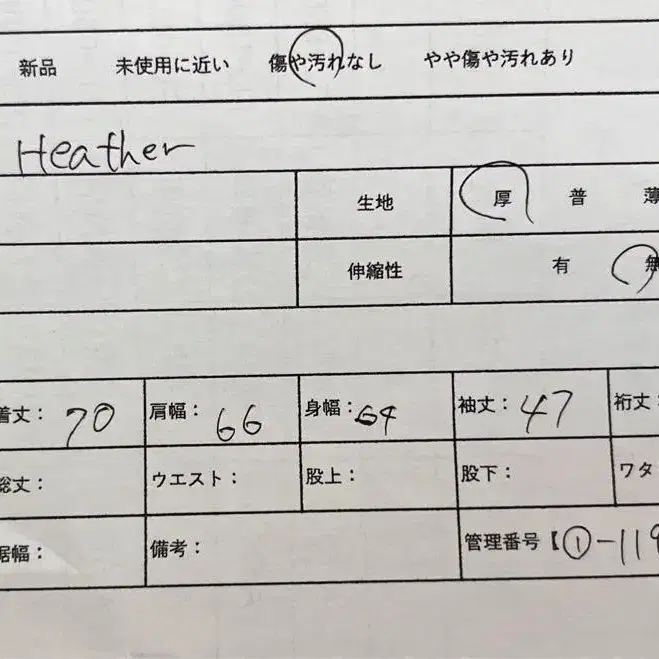 新品 未使用に近い 傷や汚れなし やや傷や汚れあり
Heather
生地 厚 普 薄
伸縮性 有 無
着丈： 70 肩幅： 66 身幅： 64 袖丈： 47 裄丈：
総丈： ウエスト： 股上： 股下： ワタ
裾幅： 備考： 管理番号【①-119